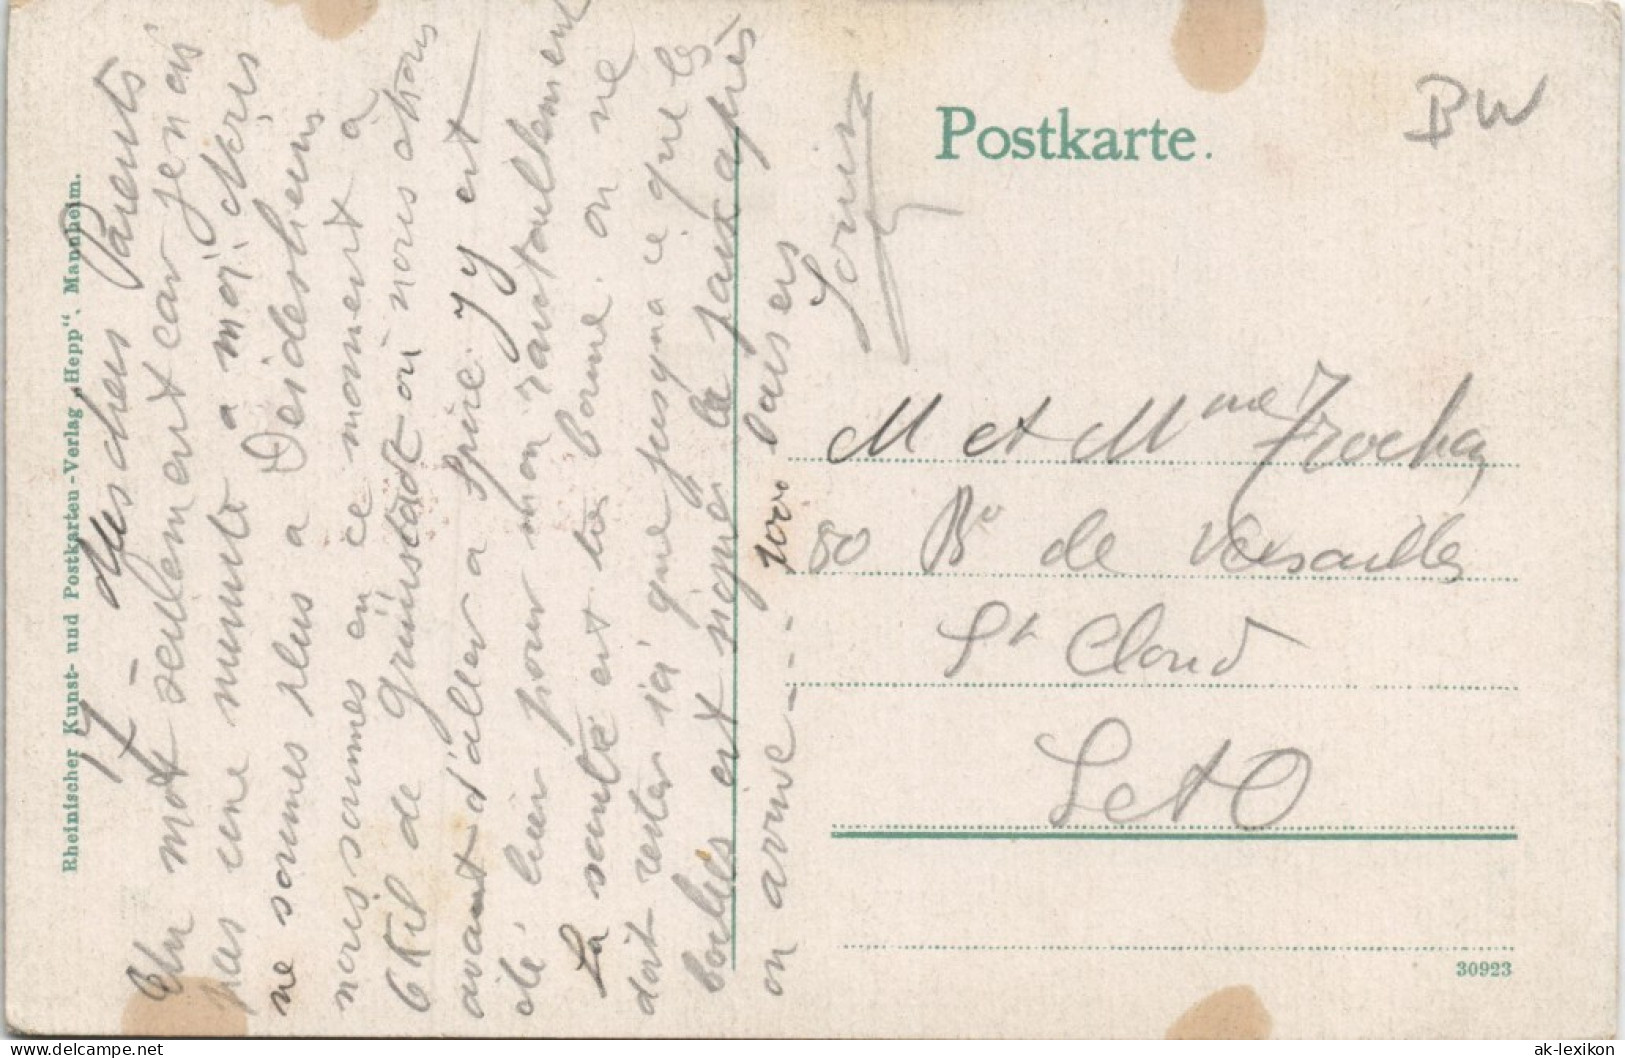 Postkarte.
BW
Rheinischer Kunst- und Postkarten-Verlag „Hepp“. Mannheim.
17 - Mes chers Parents
Un mot seulement car je n'ai
pas une minute a moi. Nous
ne sommes plus a Deidesheim
nous sommes en ce moment à
6 Kil de Grünstadt où nous étions
avant d'aller a Spire. J'y ai
été bien pour mon ravitaillement
La santé est très bonne. on ne
doit rester ici que jusqu'a ce que les
boches ait signé la paix après
on arrive - - - 1000 baisers
M et Mme
80 Bd de Versailles
St Cloud
S et O
30923
ak-ansichtskarten.de
ak-lexikon